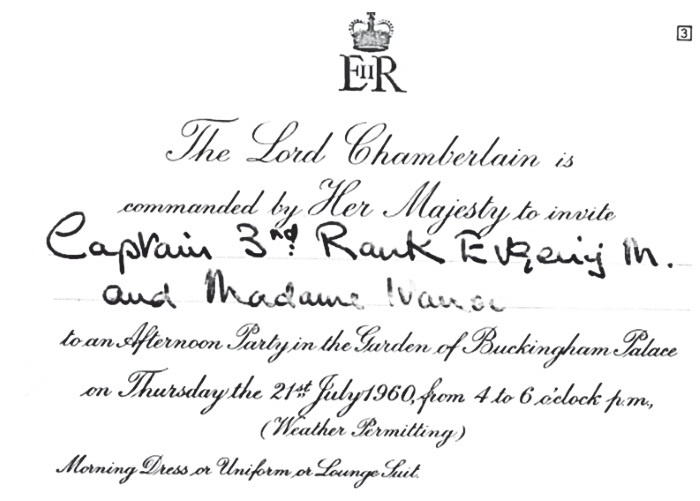 3
EIIR
The Lord Chamberlain is
commanded by Her Majesty to invite
Captain 3nd. Rank Evgenij M.
and Madame
to an Afternoon Party in the Garden of Buckingham Palace
on Thursday the 21st July 1960, from 4 to 6 o'clock p.m.,
(Weather Permitting)
Morning Dress or Uniform or Lounge Suit.